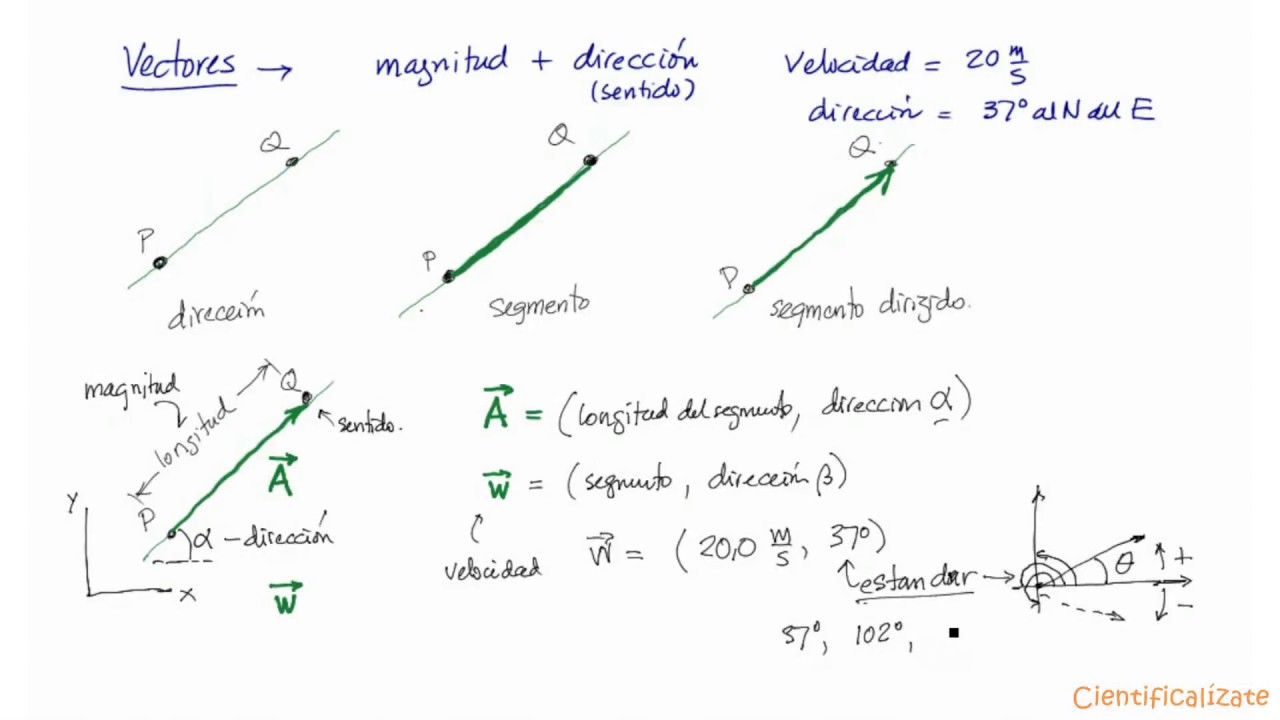 Vectores → magnitud + dirección
(sentido)
Velocidad = 20 m/s
dirección = 37° al N del E
Q
P
dirección
Q
P
segmento
Q
P
segmento dirigido.
magnitud
longitud
Q
sentido.
A
P
α - dirección
Y
X
w
A = (longitud del segmento, dirección α)
w = (segmento, dirección β)
velocidad
w = (20,0 m/s, 37°)
estandar →
θ
+
-
37°, 102°,
Cientificalízate